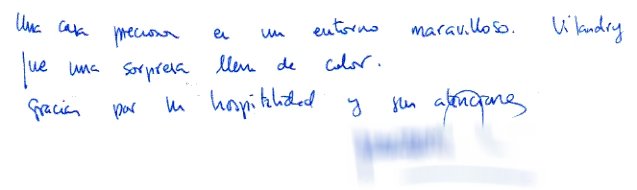 Una casa preciosa en un entorno maravilloso. Vilandry
fue una sorpresa llena de color.
Gracias por su hospitalidad y sus atenciones